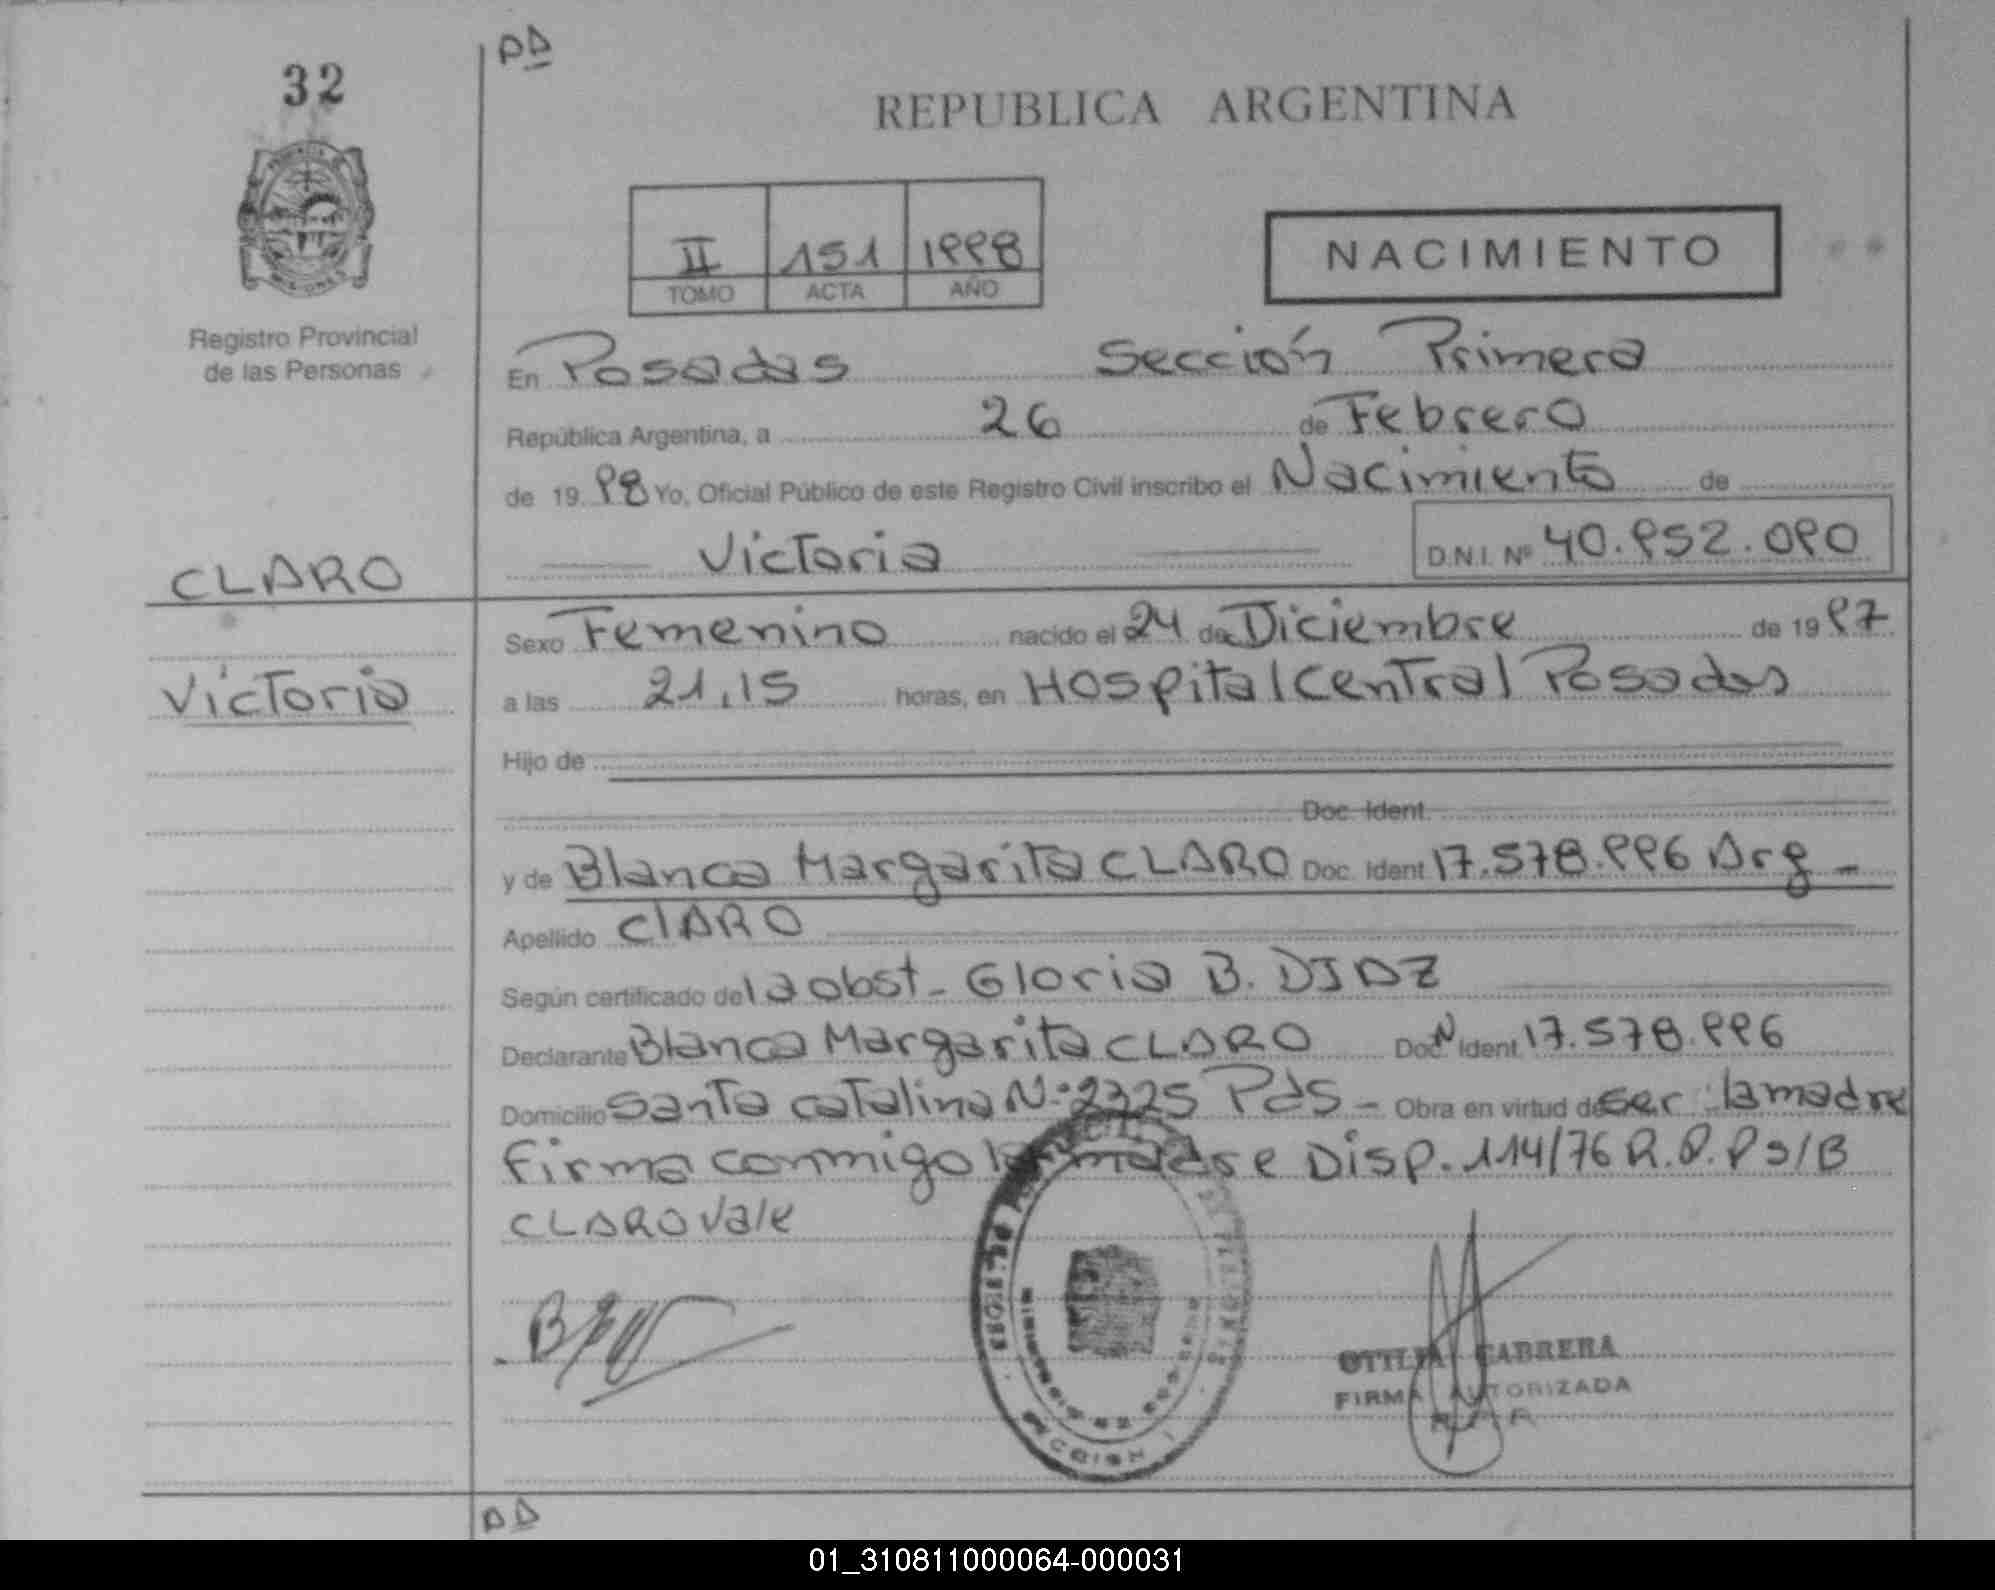 32
REPUBLICA ARGENTINA
II 151 1998
TOMO ACTA AÑO
NACIMIENTO
Registro Provincial
de las Personas
En Posadas Sección Primera
República Argentina, a 26 de Febrero
de 19 98 Yo, Oficial Público de este Registro Civil inscribo el Nacimiento de
Victoria D.N.I. Nº 40.952.090
CLARO
Victoria
Sexo Femenino nacido el 24 de Diciembre de 19 97
a las 21,15 horas, en Hospital Central Posadas
Hijo de
Doc. Ident.
y de Blanca Margarita CLARO Doc. Ident 17.578.996 Arg -
Apellido ClARO
Según certificado de la obst - Gloria B. DIAZ
Declarante Blanca Margarita CLARO Doc. Ident. 17.578.996
Domicilio Santa catalina Nº 2325 Pds - Obra en virtud de ser la madre
firma conmigo la madre Disp. 114/76 R.P.P s/B
CLARO vale
OTTILIA CABRERA
FIRMA AUTORIZADA
SECCION
01_310811000064-000031